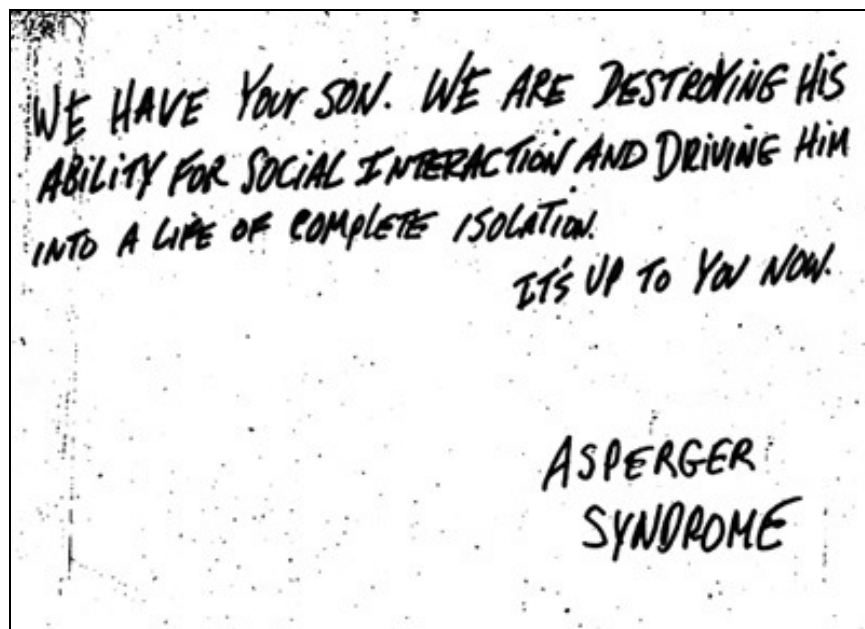 WE HAVE Your SON. WE ARE DESTROYING HIS
ABILITY FOR SOCIAL INTERACTION AND DRIVING HIM
INTO A LIFE OF COMPLETE ISOLATION.
IT'S UP TO YOU NOW.
ASPERGER
SYNDROME